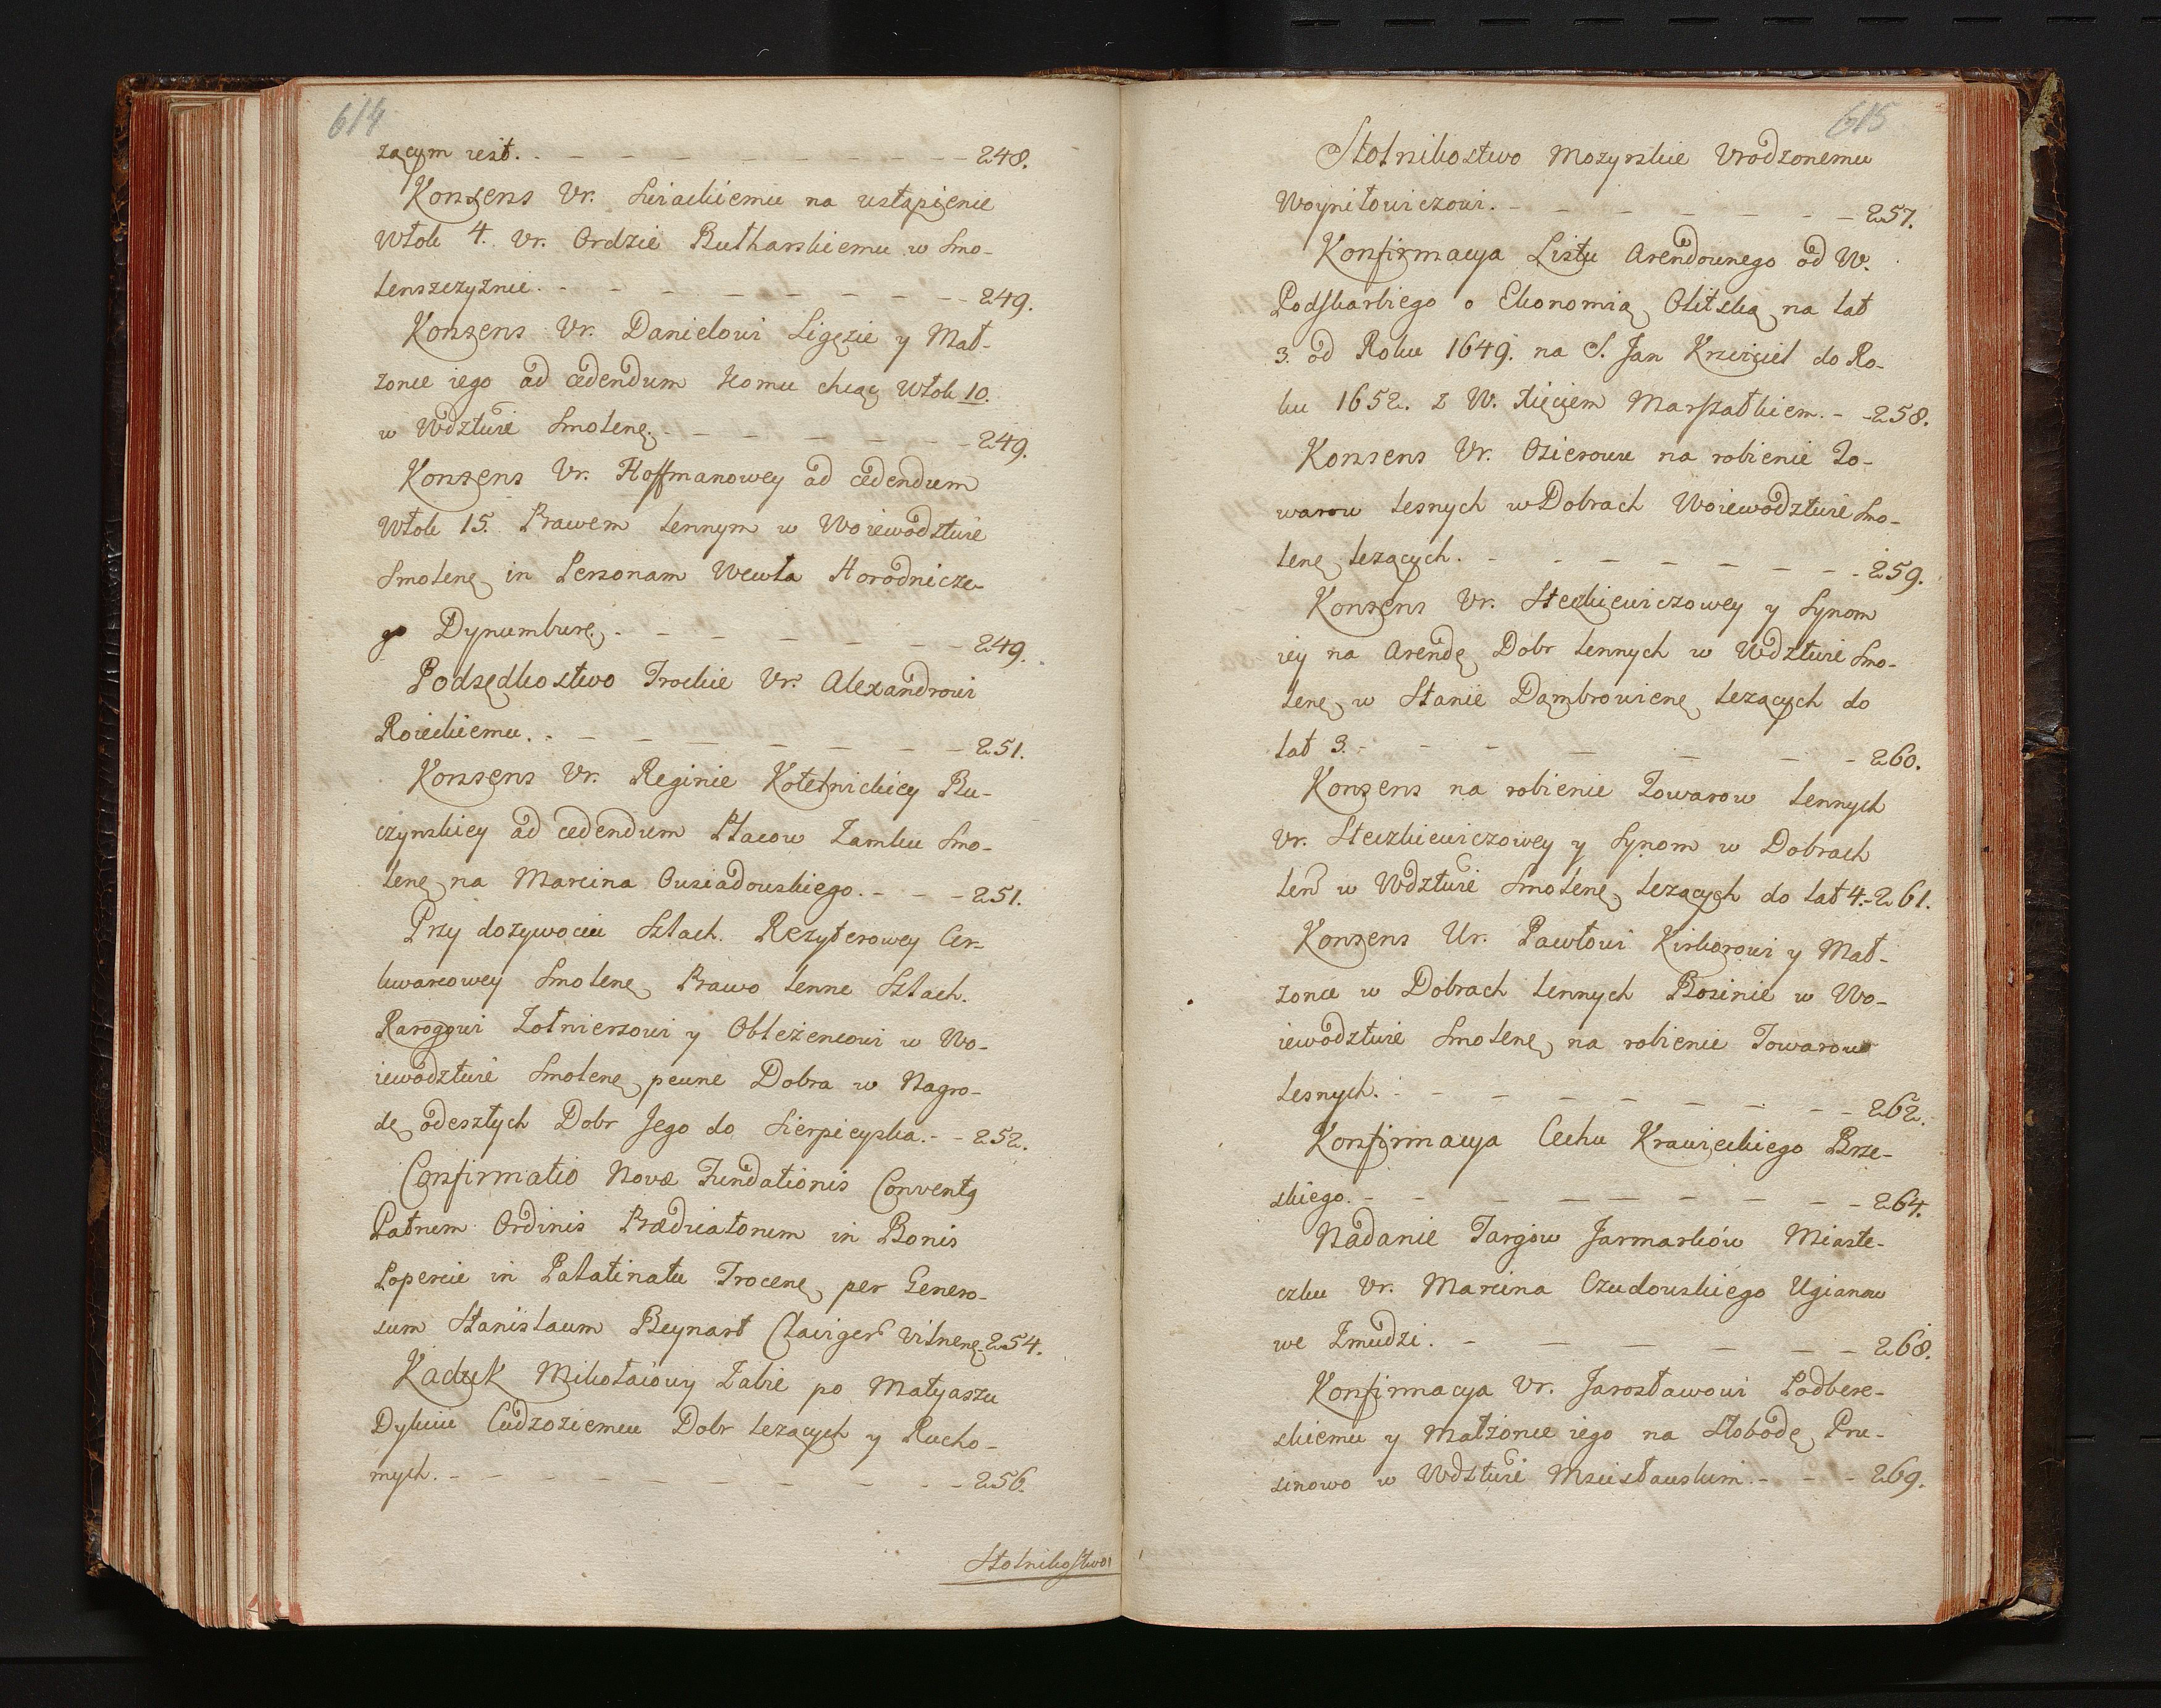 614
zącym iest. - - - - - - - - - - 248.
Konsens Vr. Swiackiemu na ustąpienie
Włok 4. Vr. Ordzie Butharskiemu w Smo-
lenszczyznie. - - - - - - - - - 249.
Konsens Vr. Danielowi Ligęzie y Mał-
zonce iego ad cedendum komu chcąc Włok 10.
w Wdztwie Smolenę. - - - - - - - - 249.
Konsens Vr. Hoffmanowey ad cedendum
Włok 15. Prawem Lennym w Woiewodztwie
Smolenę in Personam Wewla Horodnicze-
go Dynumburę. - - - - - - - 249.
Podsędkostwo Trockie Vr. Alexandrowi
Roieckiemu. - - - - - - - - 251.
Konsens Vr. Reginie Kotelnickiey Bu-
czynskiey ad cedendum Placow Zamku Smo-
lenę na Marcina Ousiadowskiego. - - - 251.
Przy dozywociu Szlach. Rezyterowey Cer-
kwarcowey Smolenę Prawo Lenne Szlach.
Rarogowi Zołnierzowi y Oblezencowi w Wo-
iewodztwie Smolenę pewne Dobra w Nagro-
dę odeszłych Dobr Jego do Sierpieyska. - - 252.
Confirmatio Novæ Fundationis Conventq
Patnem Ordinis Prædicatorum in Bonis
Popercie in Palatinatu Trocenę per Genero-
sum Stanislaum Beynart Claviger Vilnenę - 254.
Kaduk Mikołaiowy Zabie po Matyaszu
Dyknie Cudzoziemcu Dobr lezących y Rucho-
mych. - - - - - - - - - - 256.
Stolnikostwo
615
Stolnikostwo Mozyrskie Vrodzonemu
Woyniłowiczowi. - - - - - - - 257.
Konfirmacya Listu Arendownego od W.
Podskarbiego o Ekonomią Olitską na lat
3. od Roku 1649. na S. Jan Krzciciel do Ro-
ku 1652. z W. Xięciem Marszałkiem. - - 258.
Konsens Vr. Ozierowu na robienie To-
warow lesnych w Dobrach Woiewodztwie Smo-
lenę lezących. - - - - - - - 259.
Konsens Vr. Steckiewiczowey y Synom
iey na Arendę Dobr Lennych w Wdztwie Smo-
lenę w Stanie Dąmbrowienę lezących do
lat 3. - - - - - - - 260.
Konsens na robienie Towarow Lennych
Vr. Steczkiewiczowey y Synom w Dobrach
Len w Wdztwie Smolenę lezących do lat 4. - 261.
Konsens Ur. Pawłowi Kirkorowi y Mał-
zonce w Dobrach Lennych Bosinie w Wo-
iewodztwie Smolenę na robienie Towarow
Lesnych. - - - - - - - - 262.
Konfirmacya Cechu Krawieckiego Brze-
skiego. - - - - - - - - - 264.
Nadanie Targow Jarmarków Miaste-
czku Vr. Marcina Czudowskiego Ugianow
we Zmudzi. - - - - - - 268.
Konfirmacya Vr. Jarosławowi Podbere-
skiemu y Małzonce iego na Słobodę Pru-
sinowo w Wdztwie Mscisławskim. - - - 269.